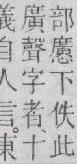 部應下佚此
廣聲字者十
義自人言東